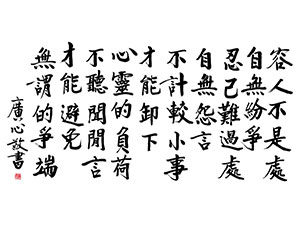 容人不是處
自無紛爭
忍己難過處
自無怨言
不計較小事
才能卸下
心靈的負荷
不聽閒閒言
才能避免
無謂的爭端
廣心敬書